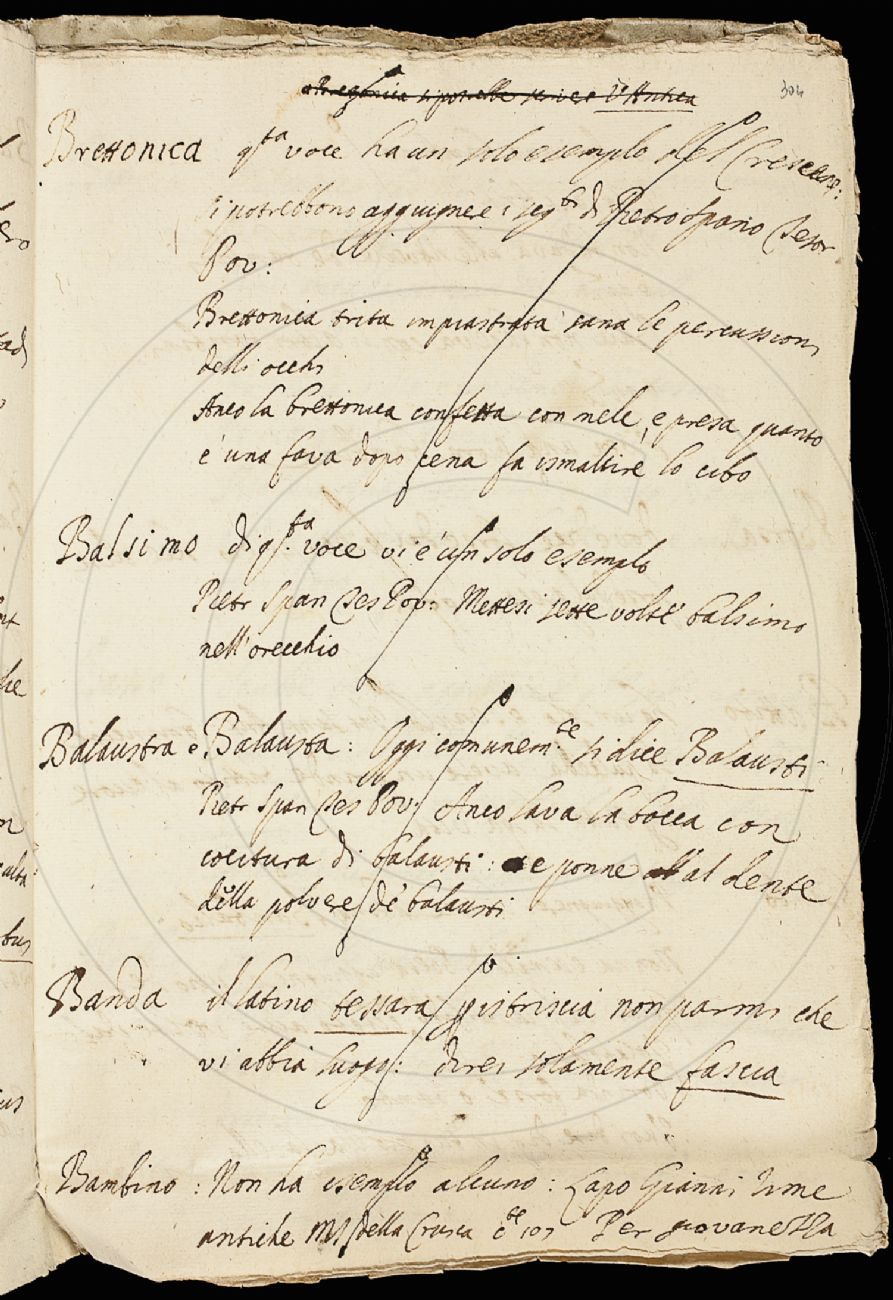 304
Brettonica q.sta voce ha un solo esempio del Crescenz:
si potrebbono aggiugnere i seg.ti di Pietro Spano Tesor
Pov:
Brettonica trita impiastrata sana le percussioni
delli occhi
Anco la brettonica confetta con mele, e presa quanto
è una fava dopo cena fa ismaltire lo cibo
Balsimo di q.sta voce vi è un solo esempio
Pietr Span Tes Pov: Mettesi sette volte balsimo
nell'orecchio
Balaustra e Balausta: Oggi comunem.te si dice Balausti
Pietr Span Tes Pov: Anco lava la bocca con
cocitura di balausti: e ponne al dente
della polvere de' balausti
Banda il latino tessara p istriscia non parmi che
vi abbia luogo: direi solamente fascia
Bambino: Non ha esempio alcuno: Lapo Gianni rime
antiche MS della Crusca Per giovanetta